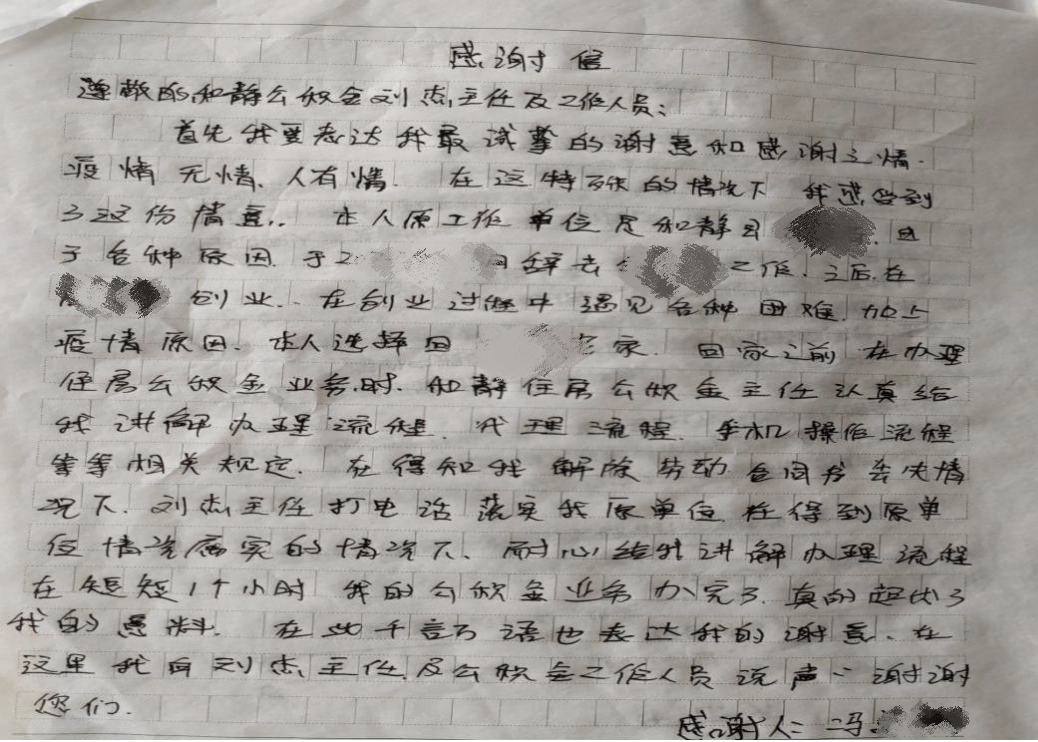 感谢信
尊敬的和静公积金刘杰主任及工作人员：
首先我要表达我最诚挚的谢意和感谢之情.
疫情无情、人有情. 在这特殊的情况下 我感受到
了这份情意.. 本人原工作单位是和静县 由
于各种原因 于2 日辞去 工作.之后.在
创业.. 在创业过程中 遇见各种困难.加上
疫情原因、本人选择回 家. 回家之前 在办理
住房公积金业务时. 和静住房公积金主任认真给
我讲解办理流程. 代理流程. 手机操作流程
等等相关规定. 在得知我解除劳动合同书丢失情
况下. 刘杰主任打电话落实我原单位 在得到原单
位情况属实的情况下、耐心给我讲解办理流程
在短短1个小时 我的公积金业务办完了.真的超出了
我的意料. 在此千言万语也表达我的谢意、在
这里我向刘杰主任及公积金工作人员说声：谢谢
您们.
感谢人：冯